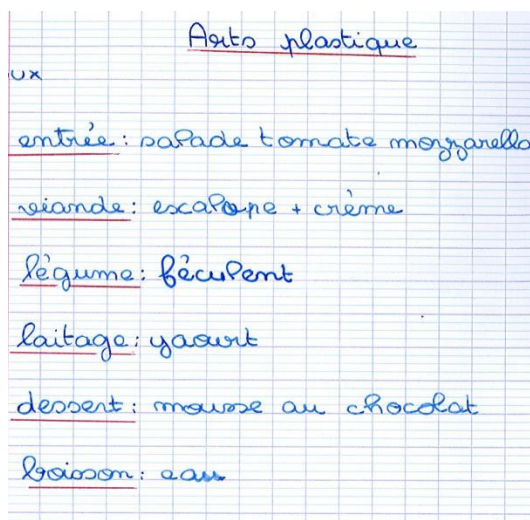 Arts plastique
ux
entrée: salade tomate mozzarella
viande: escalope + crème
légume: féculent
laitage: yaourt
dessert: mousse au chocolat
boisson: eau